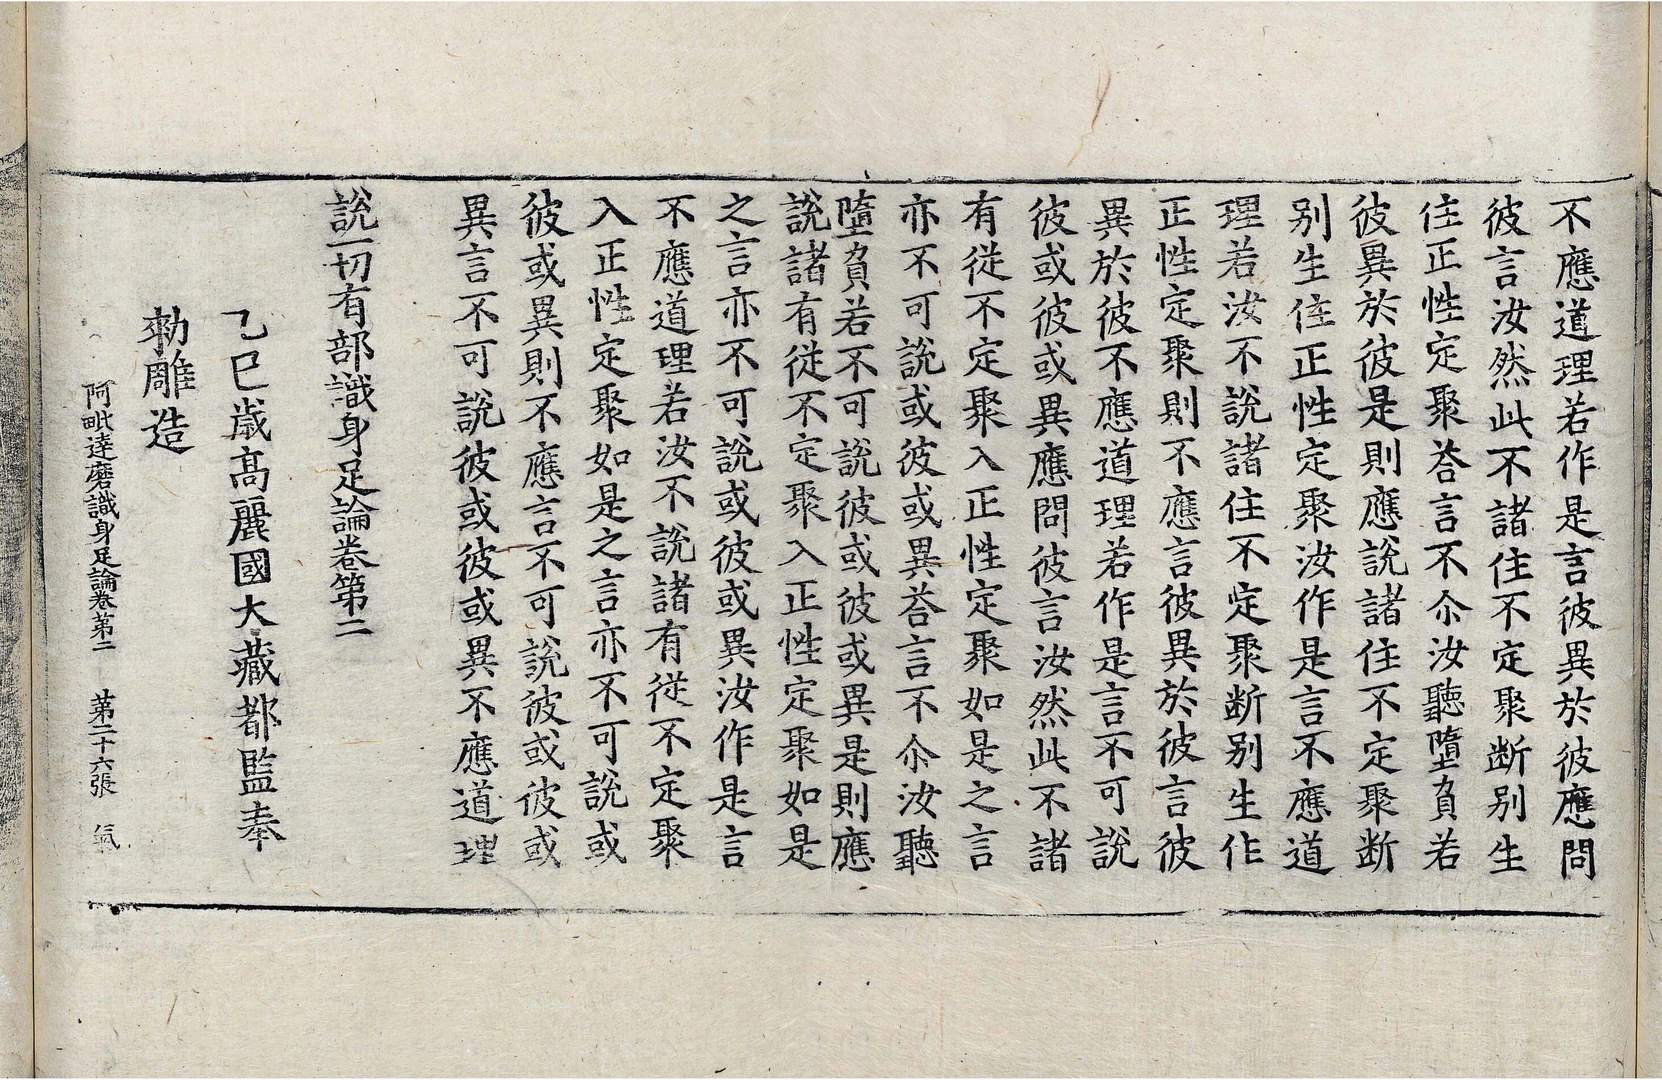 不應道理若作是言彼異於彼應問
彼言汝然此不諸住不定聚断别生
住正性定聚荅言不尒汝聽墮負若
彼異於彼是則應說諸住不定聚断
别生住正性定聚汝作是言不應道
理若汝不說諸住不定聚断别生作
正性定聚則不應言彼異於彼言彼
異於彼不應道理若作是言不可說
彼或彼或異應問彼言汝然此不諸
有從不定聚入正性定聚如是之言
亦不可說或彼或異荅言不尒汝聽
墮負若不可說彼或彼或異是則應
說諸有從不定聚入正性定聚如是
之言亦不可說或彼或異汝作是言
不應道理若汝不說諸有從不定聚
入正性定聚如是之言亦不可說或
彼或異則不應言不可說彼或彼或
異言不可說彼或彼或異不應道理
說一切有部識身足論卷第二
乙巳歲高麗國大藏都監奉
勑雕造
阿毗達磨識身足論卷第二 第二十六張 氣